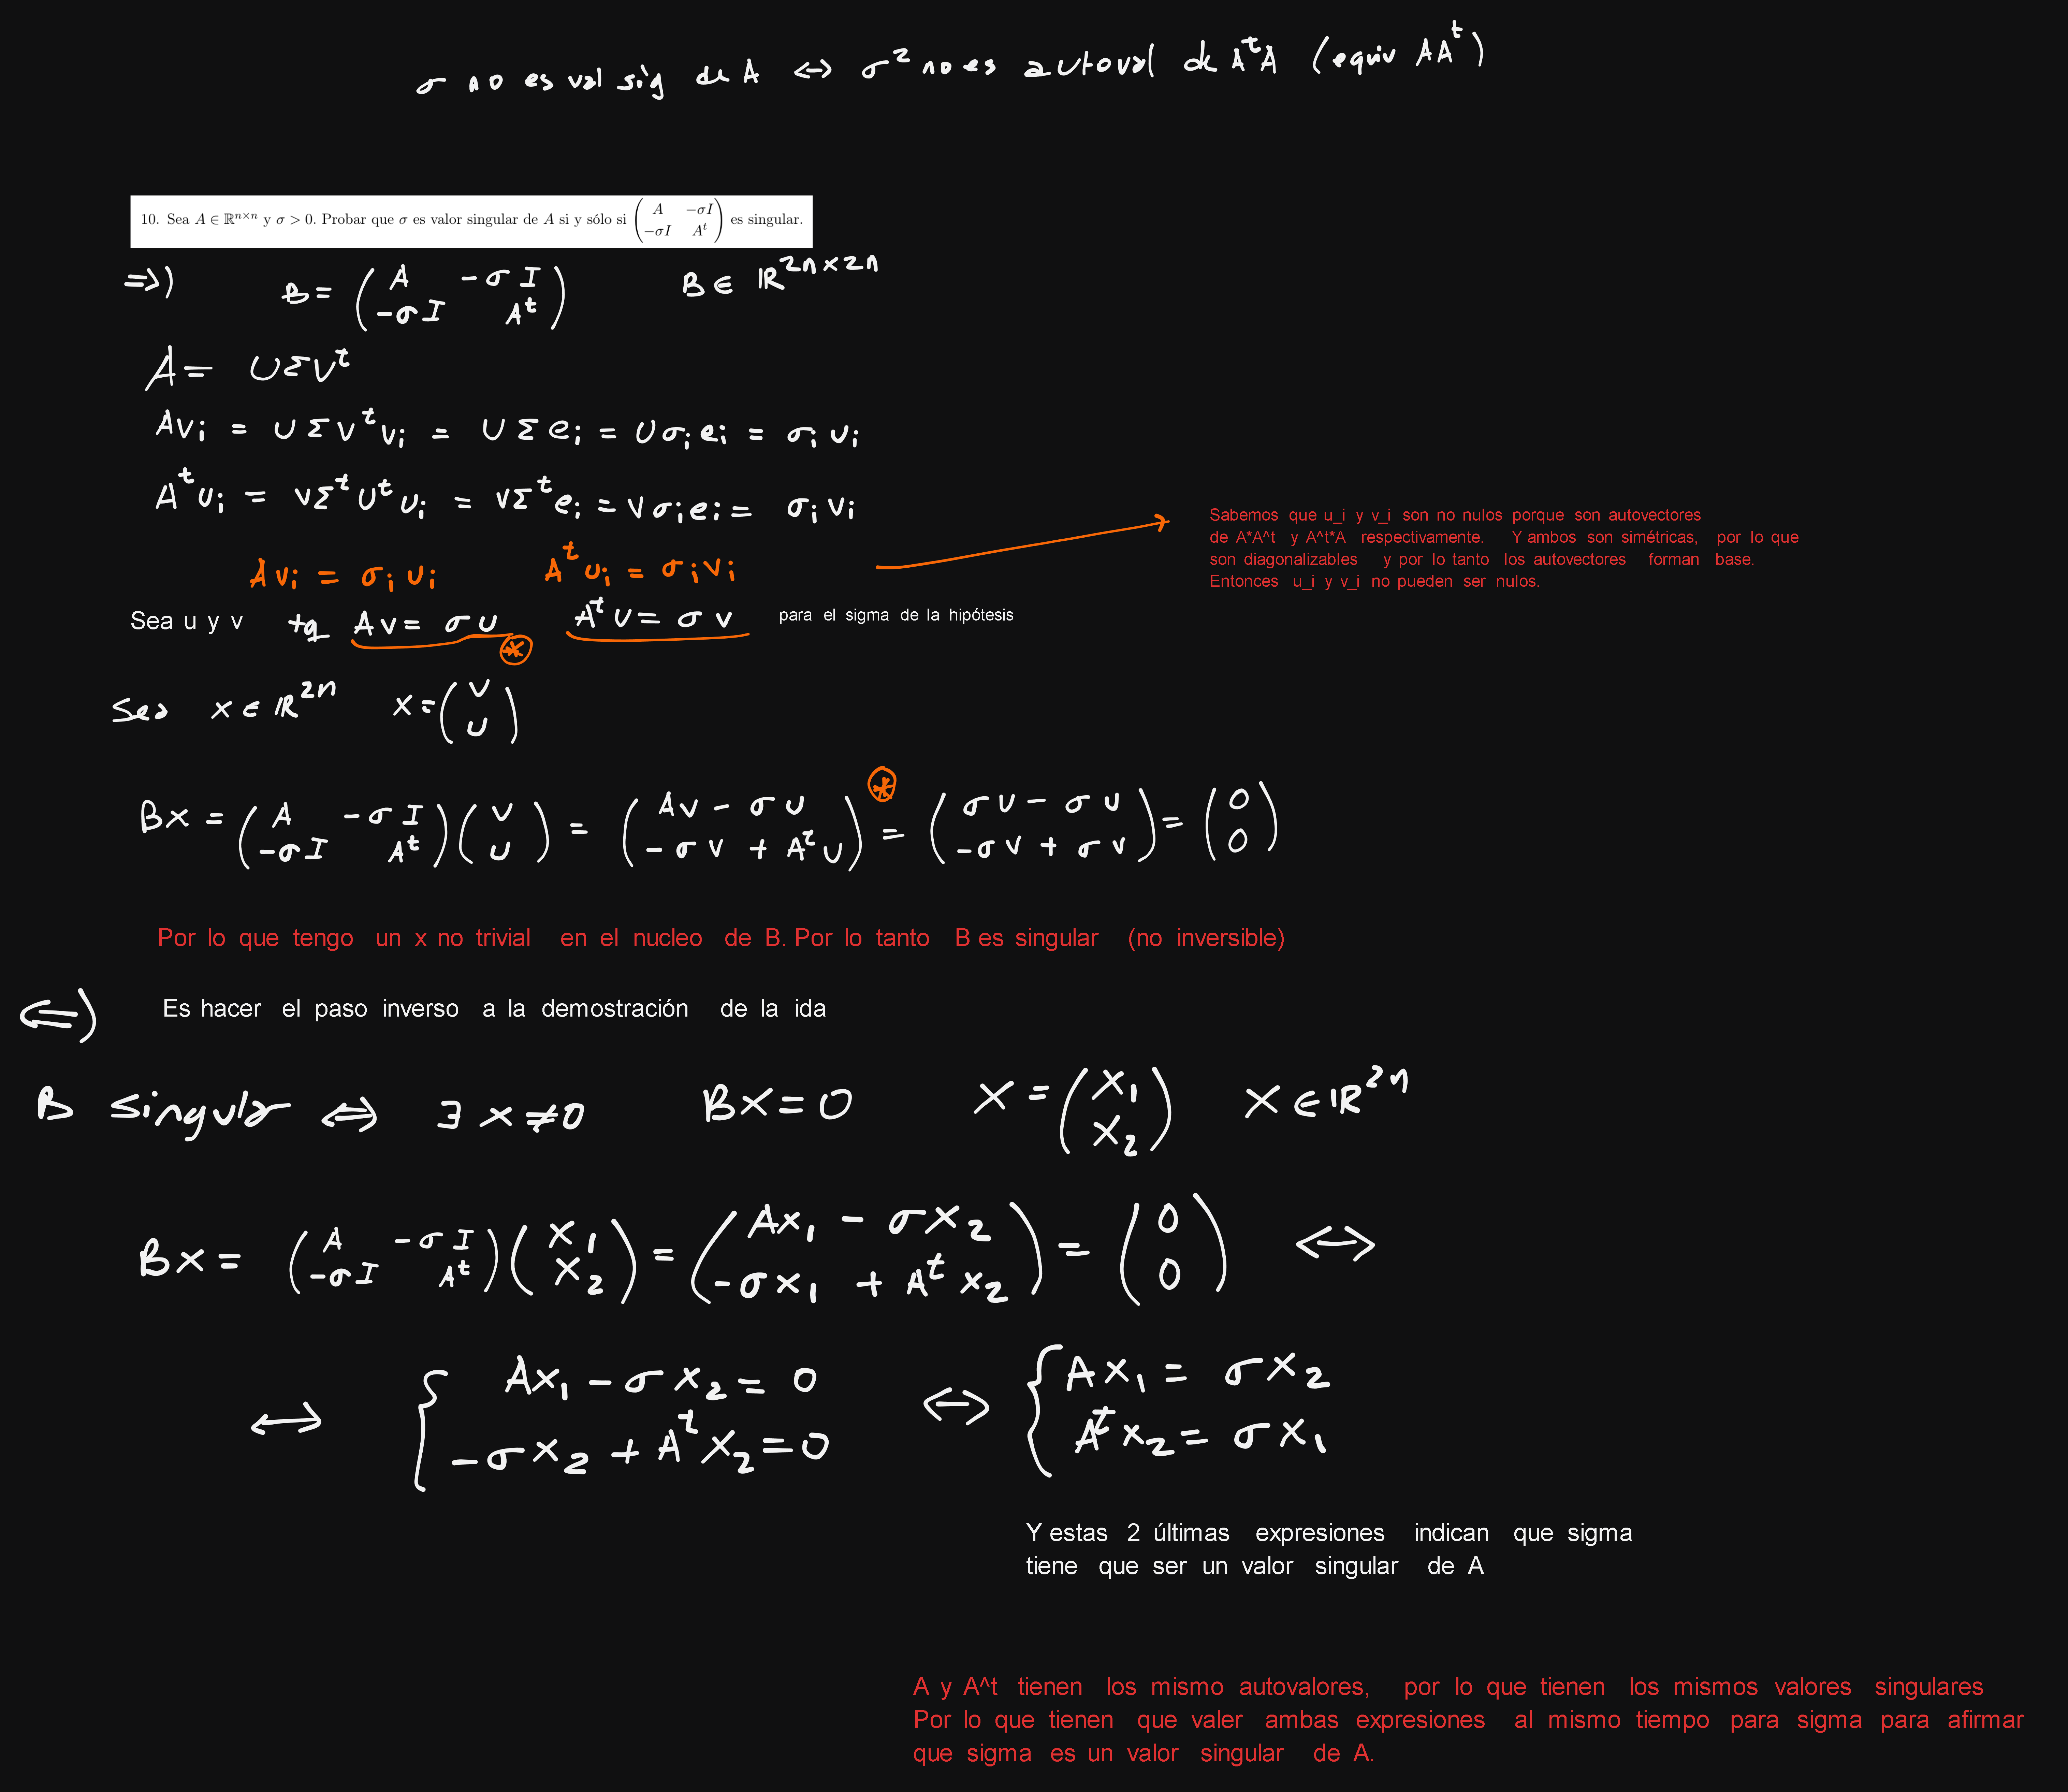 σ no es val sig de A ↔ σ² no es autoval de AᵗA (equiv AAᵗ)
10. Sea A ∈ ℝⁿˣⁿ y σ > 0. Probar que σ es valor singular de A si y sólo si (A −σI; −σI Aᵗ) es singular.
⇒) B = (A −σI; −σI Aᵗ) B ∈ ℝ²ⁿˣ²ⁿ
A = UΣVᵗ
Avᵢ = UΣVᵗvᵢ = UΣeᵢ = Uσᵢeᵢ = σᵢuᵢ
Aᵗuᵢ = VΣᵗUᵗuᵢ = VΣᵗeᵢ = Vσᵢeᵢ = σᵢvᵢ
Avᵢ = σᵢuᵢ Aᵗuᵢ = σᵢvᵢ
Sabemos que u_i y v_i son no nulos porque son autovectores
de A*A^t y A^t*A respectivamente. Y ambos son simétricas, por lo que
son diagonalizables y por lo tanto los autovectores forman base.
Entonces u_i y v_i no pueden ser nulos.
Sea u y v tq Av = σu Aᵗu = σv para el sigma de la hipótesis
*
Sea x ∈ ℝ²ⁿ x = (v; u)
Bx = (A −σI; −σI Aᵗ)(v; u) = (Av − σu; −σv + Aᵗu) =* (σu − σu; −σv + σv) = (0; 0)
Por lo que tengo un x no trivial en el nucleo de B. Por lo tanto B es singular (no inversible)
⇐) Es hacer el paso inverso a la demostración de la ida
B singular ⇔ ∃ x ≠ 0 Bx = 0 x = (x₁; x₂) x ∈ ℝ²ⁿ
Bx = (A −σI; −σI Aᵗ)(x₁; x₂) = (Ax₁ − σx₂; −σx₁ + Aᵗx₂) = (0; 0) ⇔
↔ { Ax₁ − σx₂ = 0; −σx₂ + Aᵗx₂ = 0 ⇔ { Ax₁ = σx₂; Aᵗx₂ = σx₁
Y estas 2 últimas expresiones indican que sigma
tiene que ser un valor singular de A
A y A^t tienen los mismo autovalores, por lo que tienen los mismos valores singulares
Por lo que tienen que valer ambas expresiones al mismo tiempo para sigma para afirmar
que sigma es un valor singular de A.